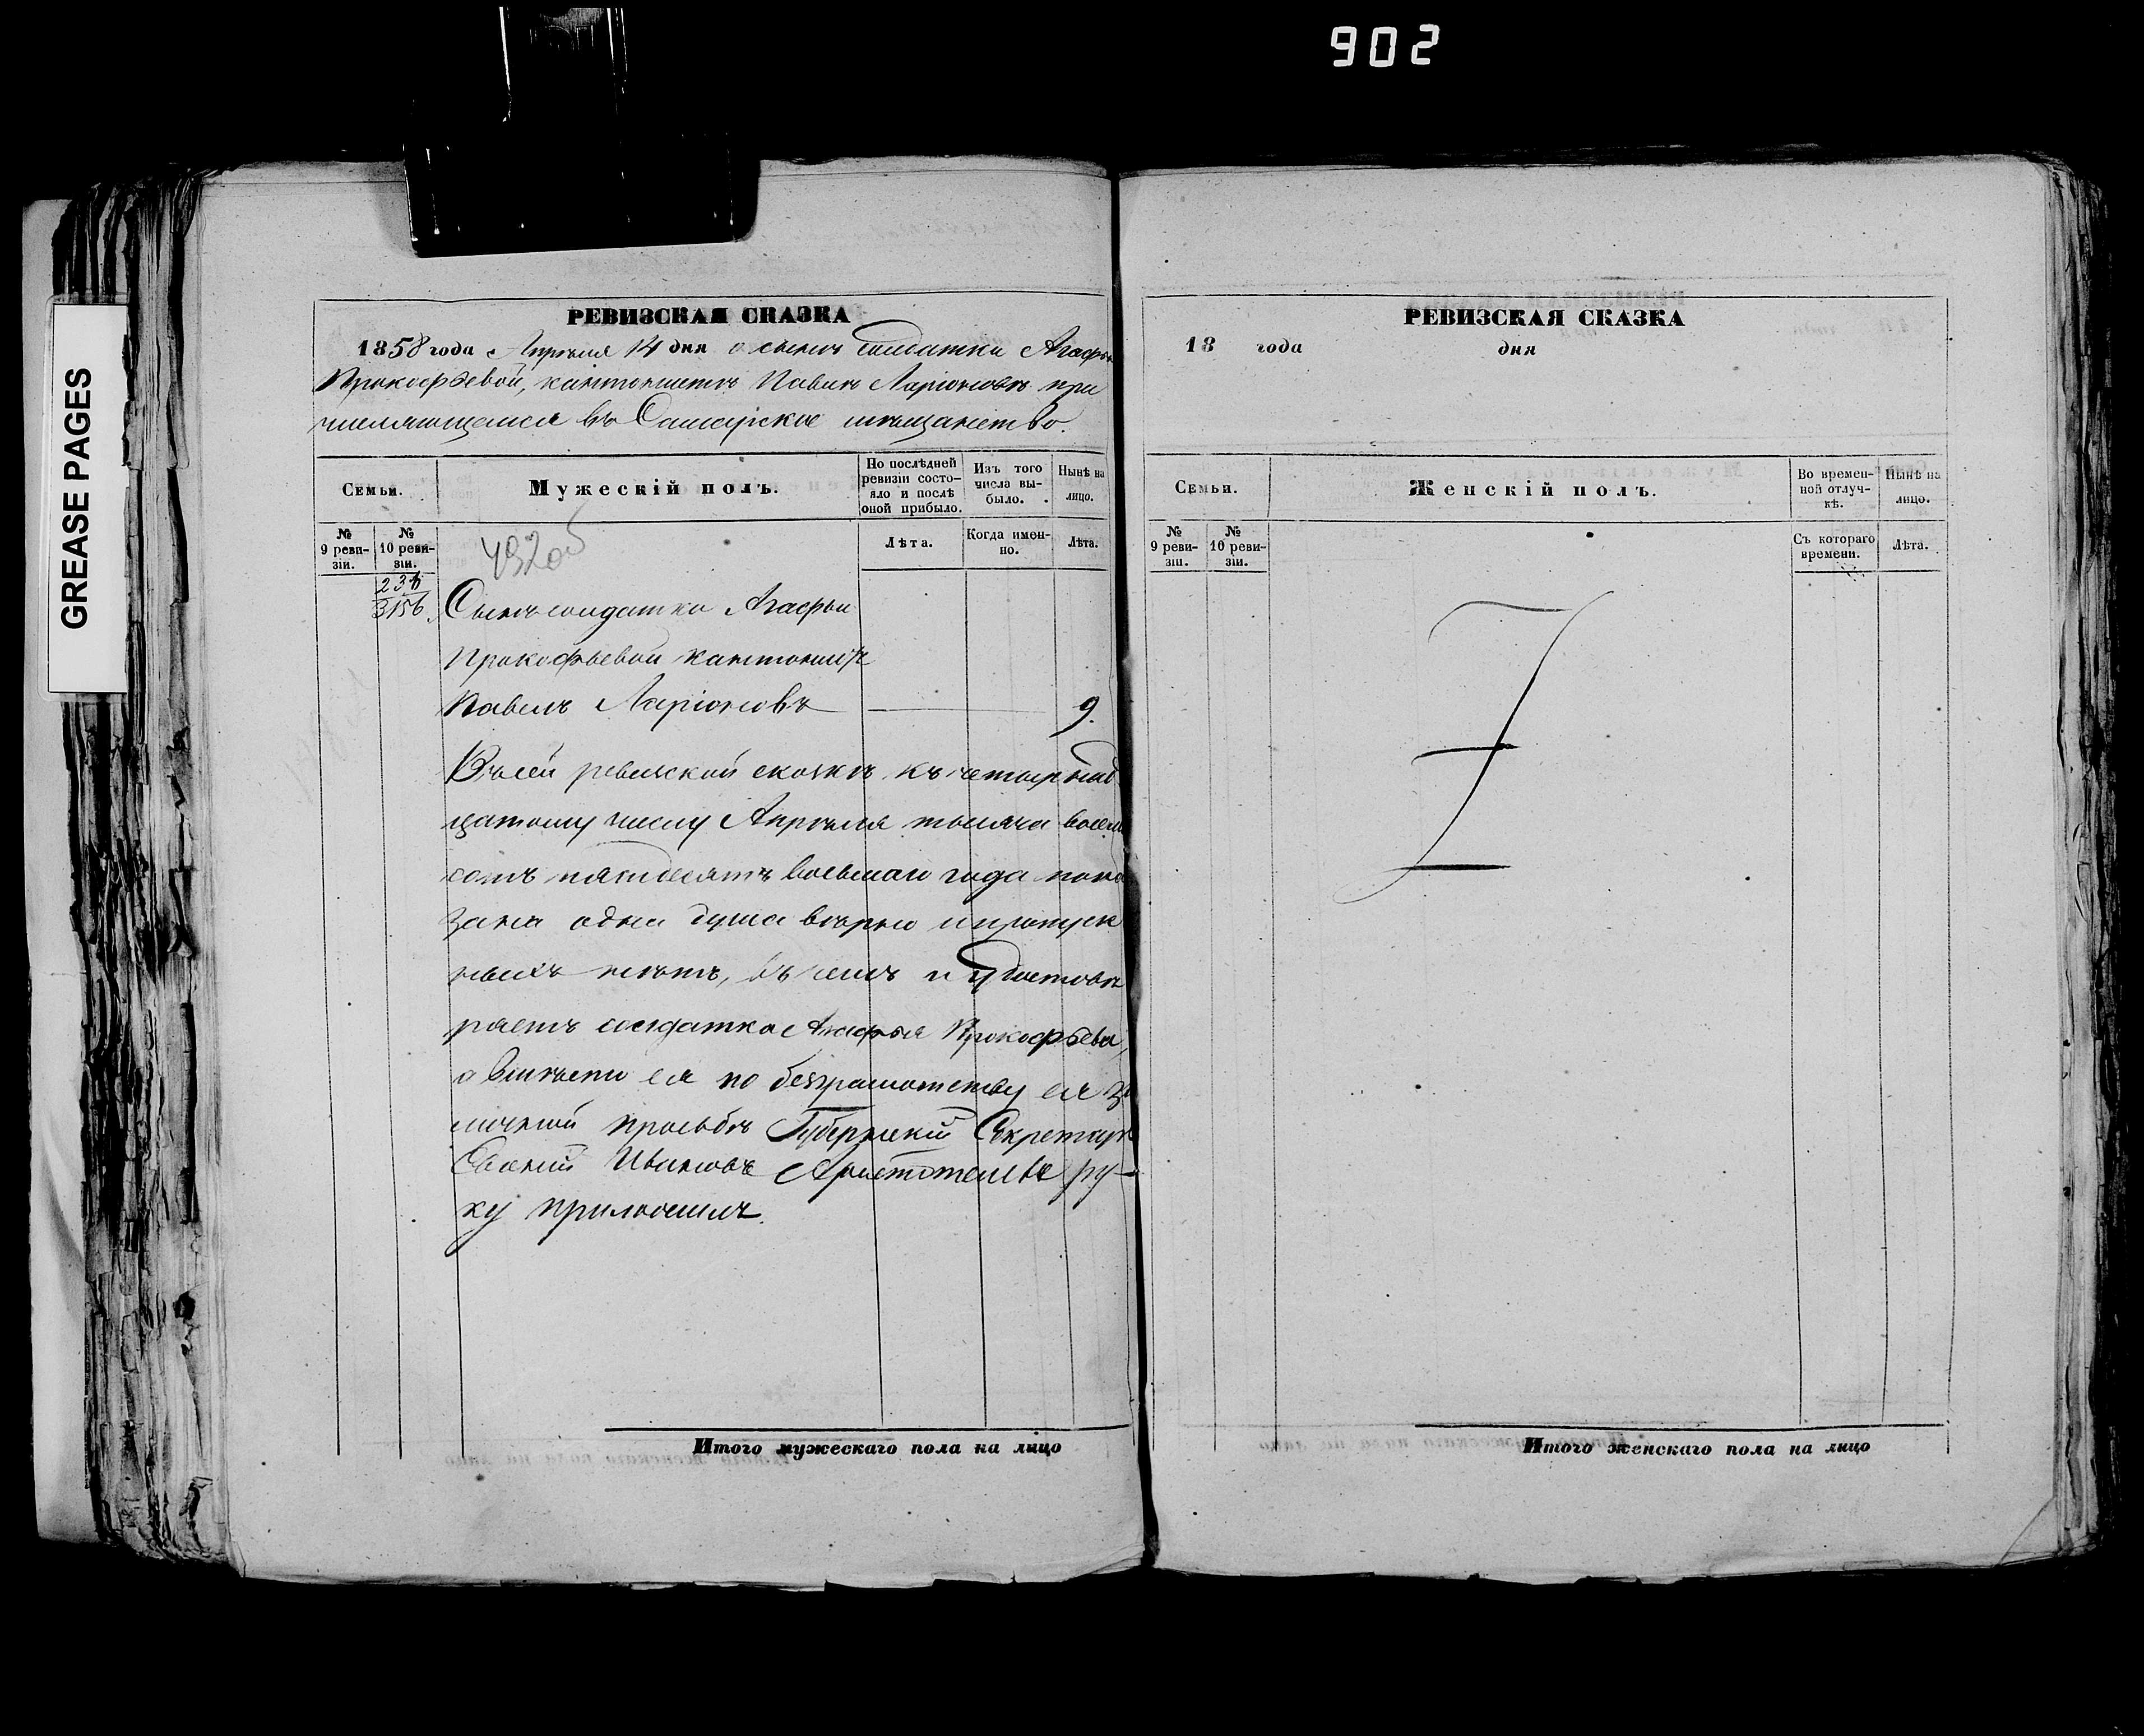 902
GREASE PAGES
РЕВИЗСКАЯ СКАЗКА
1858 года Апрѣля 14 дня о сынѣ солдатки Агафьи
Прокофьевой, кантонистѣ Павлѣ Ларіоновѣ при
числяющемся въ Самарское мѣщанство.
Семьи.
Мужескій полъ.
По послѣдней ревизіи состо-
яло и послѣ оной прибыло.
Изъ того числа вы-
было.
Нынѣ на лицо.
№ 9 реви-
зіи.
№ 10 реви-
зіи.
Лѣта.
Когда имен-
но.
Лѣта.
3156.
Сынъ солдатки Агафьи
Прокофьевой кантонистъ
Павелъ Ларіоновъ 9.
Въ сей ревизской сказкѣ къ четырнад
цатому числу Апрѣля тысяча восем
сотъ пятдесятъ восьмаго года пока
зана одна душа вѣрно и пропуск
ныхъ нѣтъ, въ чемъ и удостовѣ
ряетъ солдатка Агафья Прокофьева,
а вмѣсто ея по безграмотству ея за
личной просьбѣ Губернскій Секретарь
Ивановъ Аристотелевъ ру-
ку приложилъ.
Итого мужескаго пола на лицо
РЕВИЗСКАЯ СКАЗКА
18 года дня
Семьи.
Женскій полъ.
Во времен-
ной отлуч-
кѣ.
Нынѣ на лицо.
№ 9 реви-
зіи.
№ 10 реви-
зіи.
Съ котораго времени.
Лѣта.
Итого женскаго пола на лицо